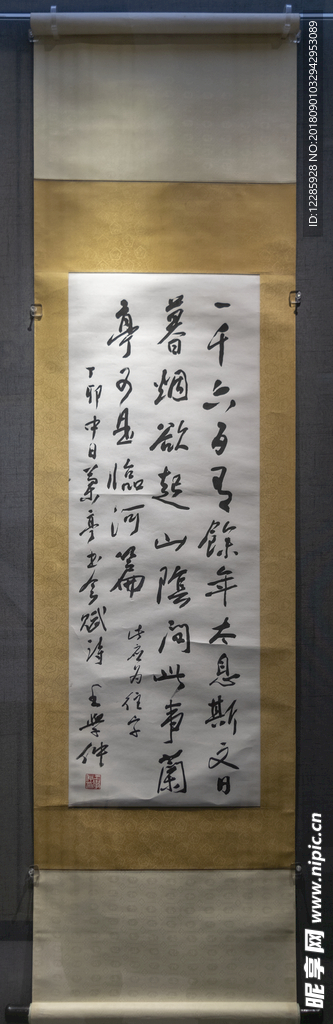 一千六百有餘年太息斯文日
暮烟欲起山陰問此事蘭
亭可是臨河篇
此應为往字
丁卯中日蘭亭书会賦詩 王學仲
ID:12285928 NO:20180901032942953089
昵享网 www.nipic.cn